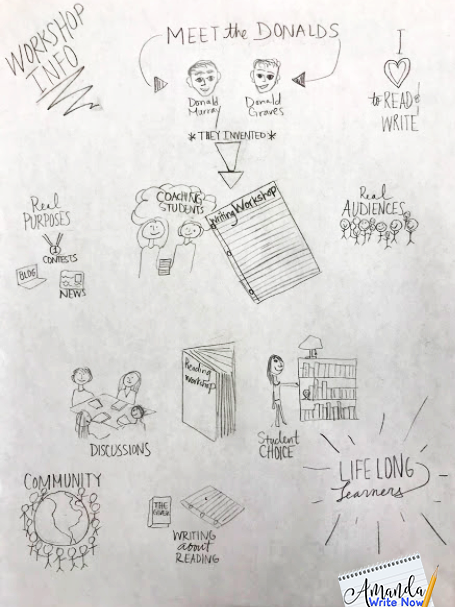 WORKSHOP
INFO
MEET the DONALDS
Donald
Murray
Donald
Graves
*THEY INVENTED*
I
to READ &
WRITE
Real
PURPOSES
CONTESTS
BLOG
NEWS
COACHING
STUDENTS
Writing Workshop
Real
AUDIENCES
DISCUSSIONS
Reading
Workshop
Student
CHOICE
LIFE LONG
Learners
COMMUNITY
THE
WRITING
about
READING
Amanda
Write Now